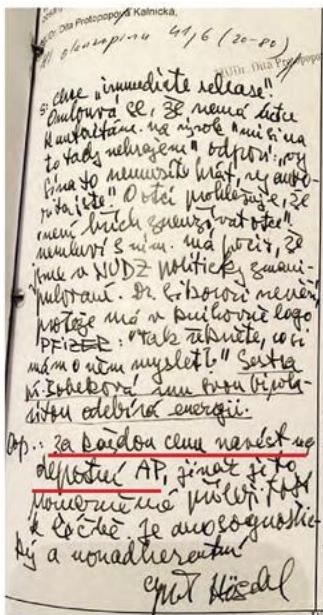 MUDr. Dita Protopopová Kalnická,
olanzapinu 41/6 (20-80)
MUDr. Dita Protopopov
S: chce "immediate release".
Omlouvá se, že nemá úctu
k autoritám. na výrok "my si na
to tady nehrajeme" odpoví: "vy
si na to nemusíte hrát, vy auto-
rita jste." O otci prohlašuje, že
"není hřích zneuzívat otce"
nemluví s ním. má pocit, že
jsme v NUDZ politicky zmani-
pulovaní. Dr. nevěří,
protože má v knihovně logo
PFIZER: "Tak řekněte, co si
mám o něm myslet?" Sestra
mu svou bipola-
ritou odebírá energii.
Dop.: za každou cenu navést na
depotní AP, jinak je to
poměrně má příležitost
k léčbě je anosognostic-
ký a nonadherentní